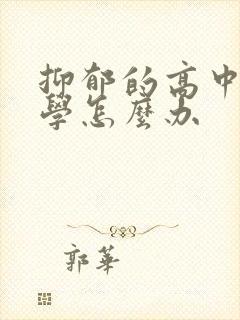 抑郁的高中
學怎麼办
郭華